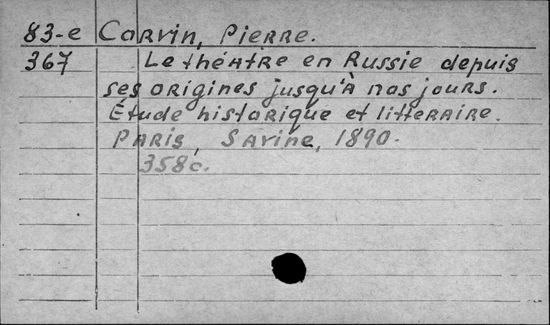 83-e Corvin, Pierre.
367 Le théâtre en Russie depuis
ses origines jusqu'à nos jours.
Étude historique et litteraire.
Paris, Savine, 1890.
358c.